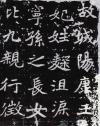 故城陽康王
妃姐聟沮渠
寧孫之長女
比九親行徵